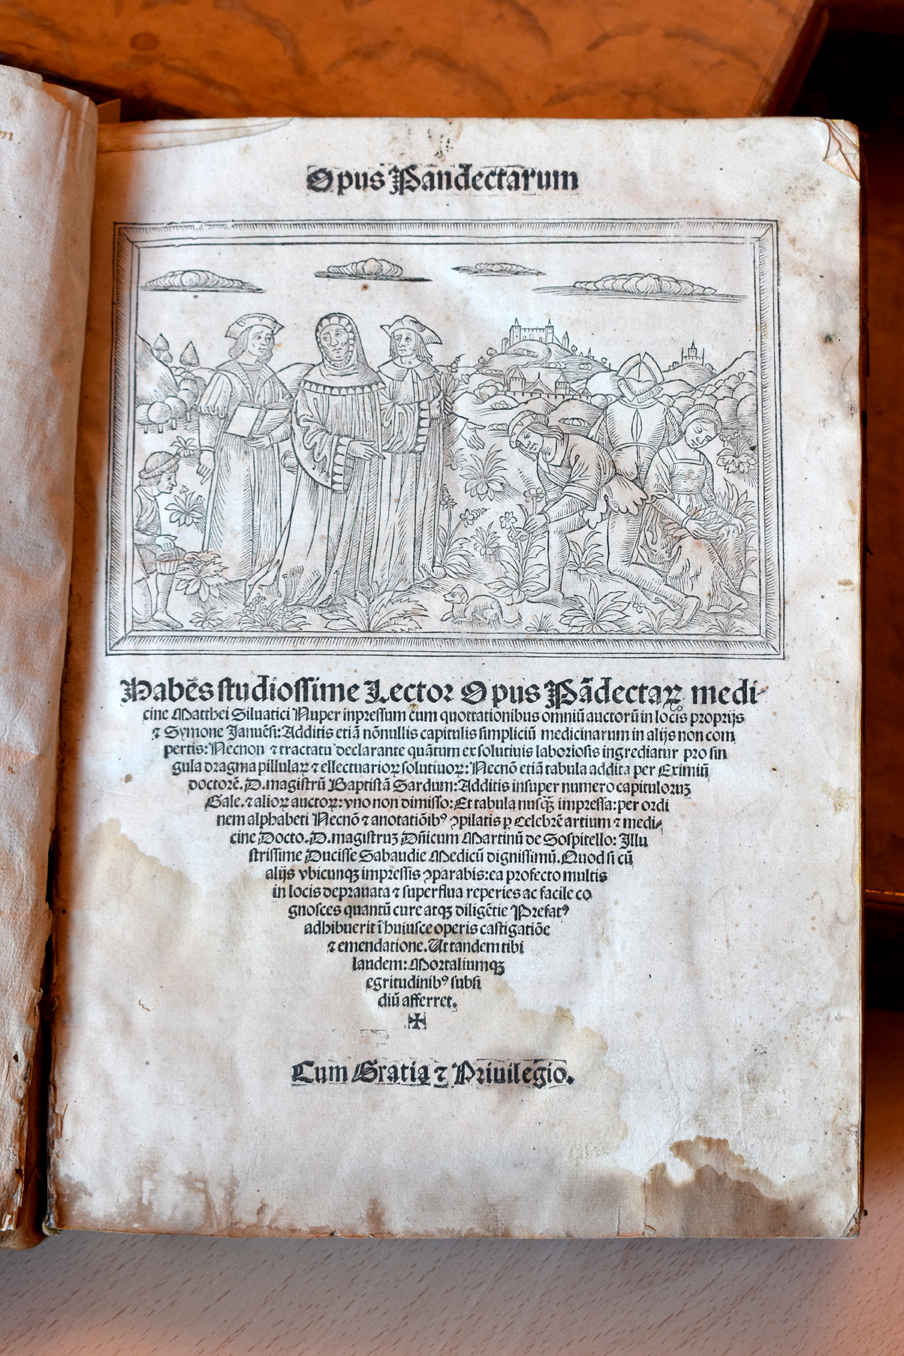 Opus Pandectarum
Habēs studiosissime Lector Opus Pādectaꝝ medi
cine Matthei Siluatici Nuper inpressum cum quottationibus omniū auctorū in locis proprijs
⁊ Symone Januēsi: Additis etiā nōnullis capitulis simpliciū medicinarum in alijs non com
pertis: Necnon ⁊ tractatu declarante quātum ex solutiuis laboriosis ingrediatur pro sin
gula dragma pillulaꝝ ⁊ ellectuarioꝝ solutiuoꝝ: Necnō etiā tabula addita per Eximiū
doctorē. D. magistrū Baptistā Sardum: Additis insuper numero capitulorum
Gale. ⁊ alioꝝ auctoꝝ: vno non dimisso: Et tabula nusqꝫ impressa: per ordi
nem alphabeti Necnō ⁊ anotatiōibꝰ ꝯpilatis ꝑ Celebrē artium ⁊ medi
cine Docto. D. magistruꝫ Dñicum Martinū de Sospitello: Illu
strissime Ducisse Sabaudie Medicū dignissimū. Quod si cū
alijs vbicunqꝫ impressis ꝯparabis: ea profecto multis
in locis deprauata ⁊ superflua reperies ac facile co
gnosces quantū cure atqꝫ diligētie Prefatꝰ
adhibuerit ī huiusce operis castigatiōe
⁊ emendatione. Ut tandem tibi
laudem: Mortaliumqꝫ
egritudinibꝰ subsi
diū afferret.
✠
Cum Gratia ⁊ Priuilegio.